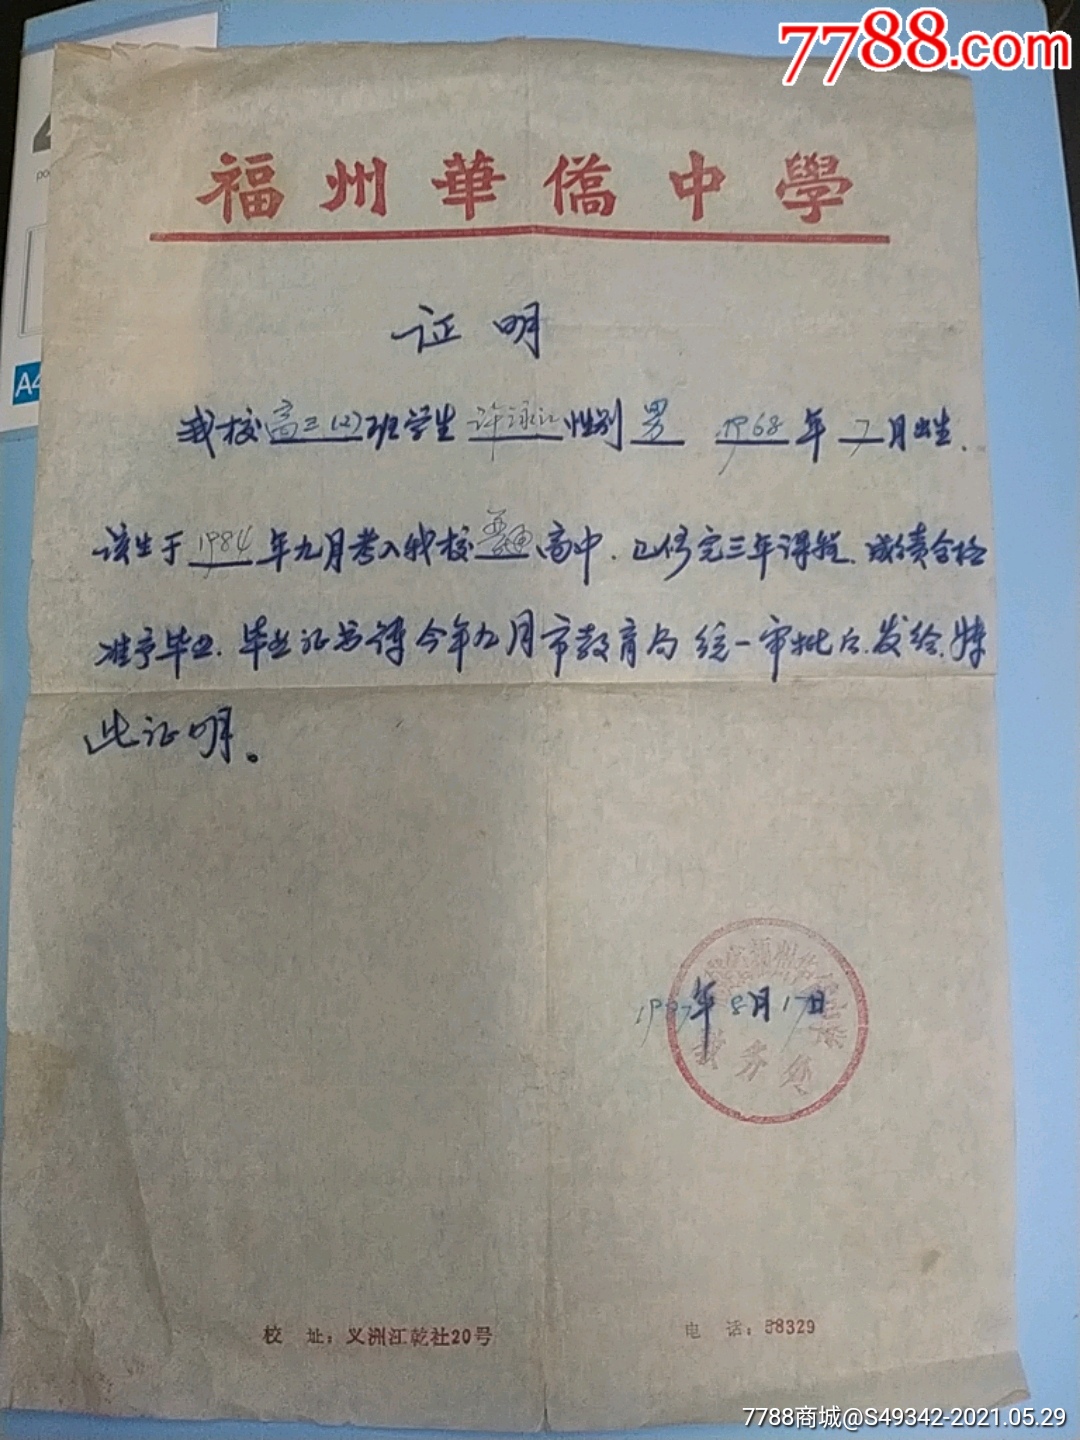 7788.com
福州華僑中學
证明
我校高三(2)班学生许泳江性别男 1968年7月出生.
该生于1984年九月考入我校普通高中.已修完三年课程.成绩合格
准予毕业.毕业证书待今年九月市教育局统一审批后.发给.特
此证明。
1987年8月17日
教务处
校 址：义洲江乾社20号 电 话：58329
A4
7788商城@S49342-2021.05.29